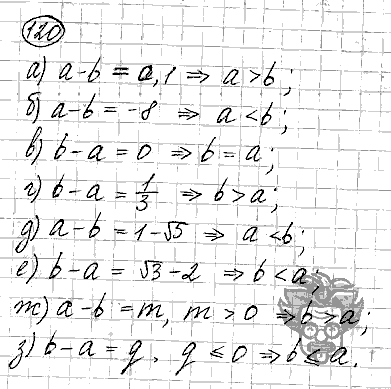 120
а) a-b = 0,1 ⇒ a > b;
б) a-b = -8 ⇒ a < b;
в) b-a = 0 ⇒ b = a;
г) b-a = 1/3 ⇒ b > a;
д) a-b = 1-√5 ⇒ a < b;
е) b-a = √3-2 ⇒ b < a;
ж) a-b = m, m > 0 ⇒ b > a;
з) b-a = q, q ≤ 0 ⇒ b ≤ a.